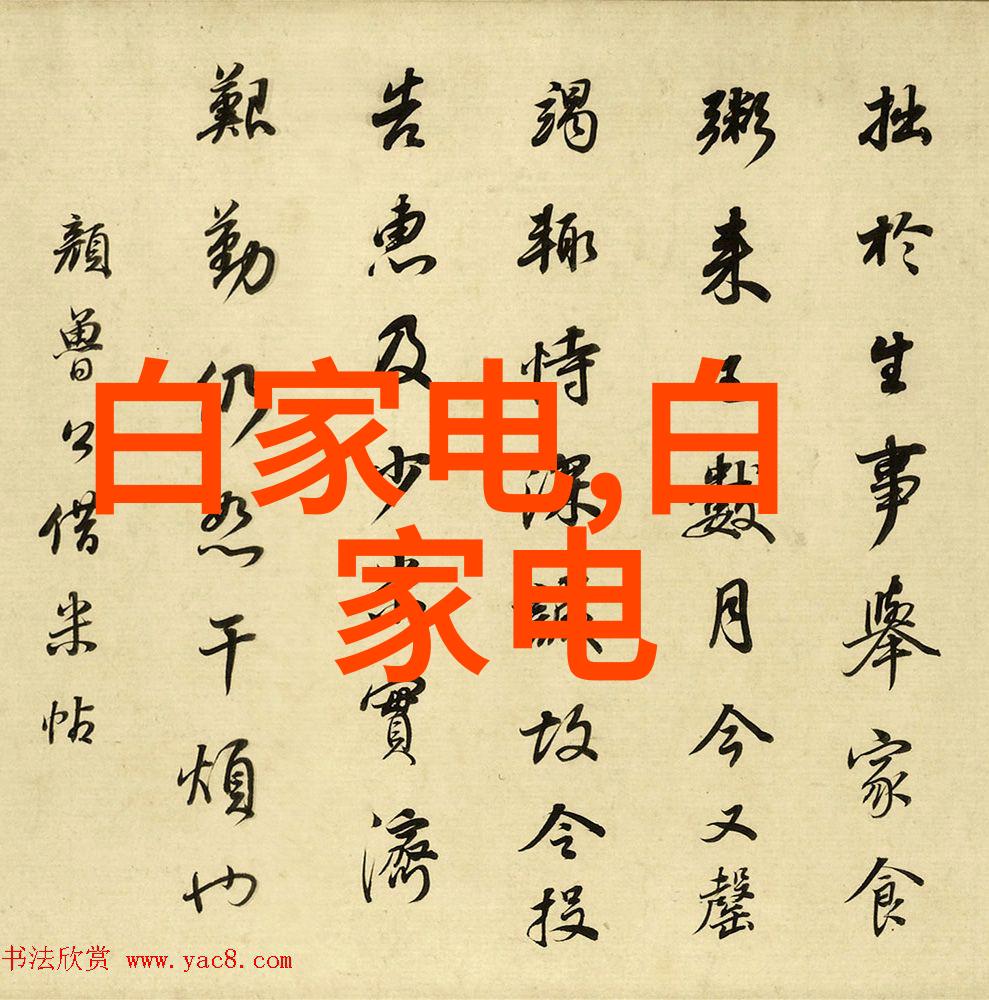 拙於生事舉家食
粥来已數月今又罄
竭輙恃深誠故令投
告惠及少米實濟
艱勤仍恕干煩也
顔魯公借米帖
白家电,白
家电
书法欣赏 www.yac8.com